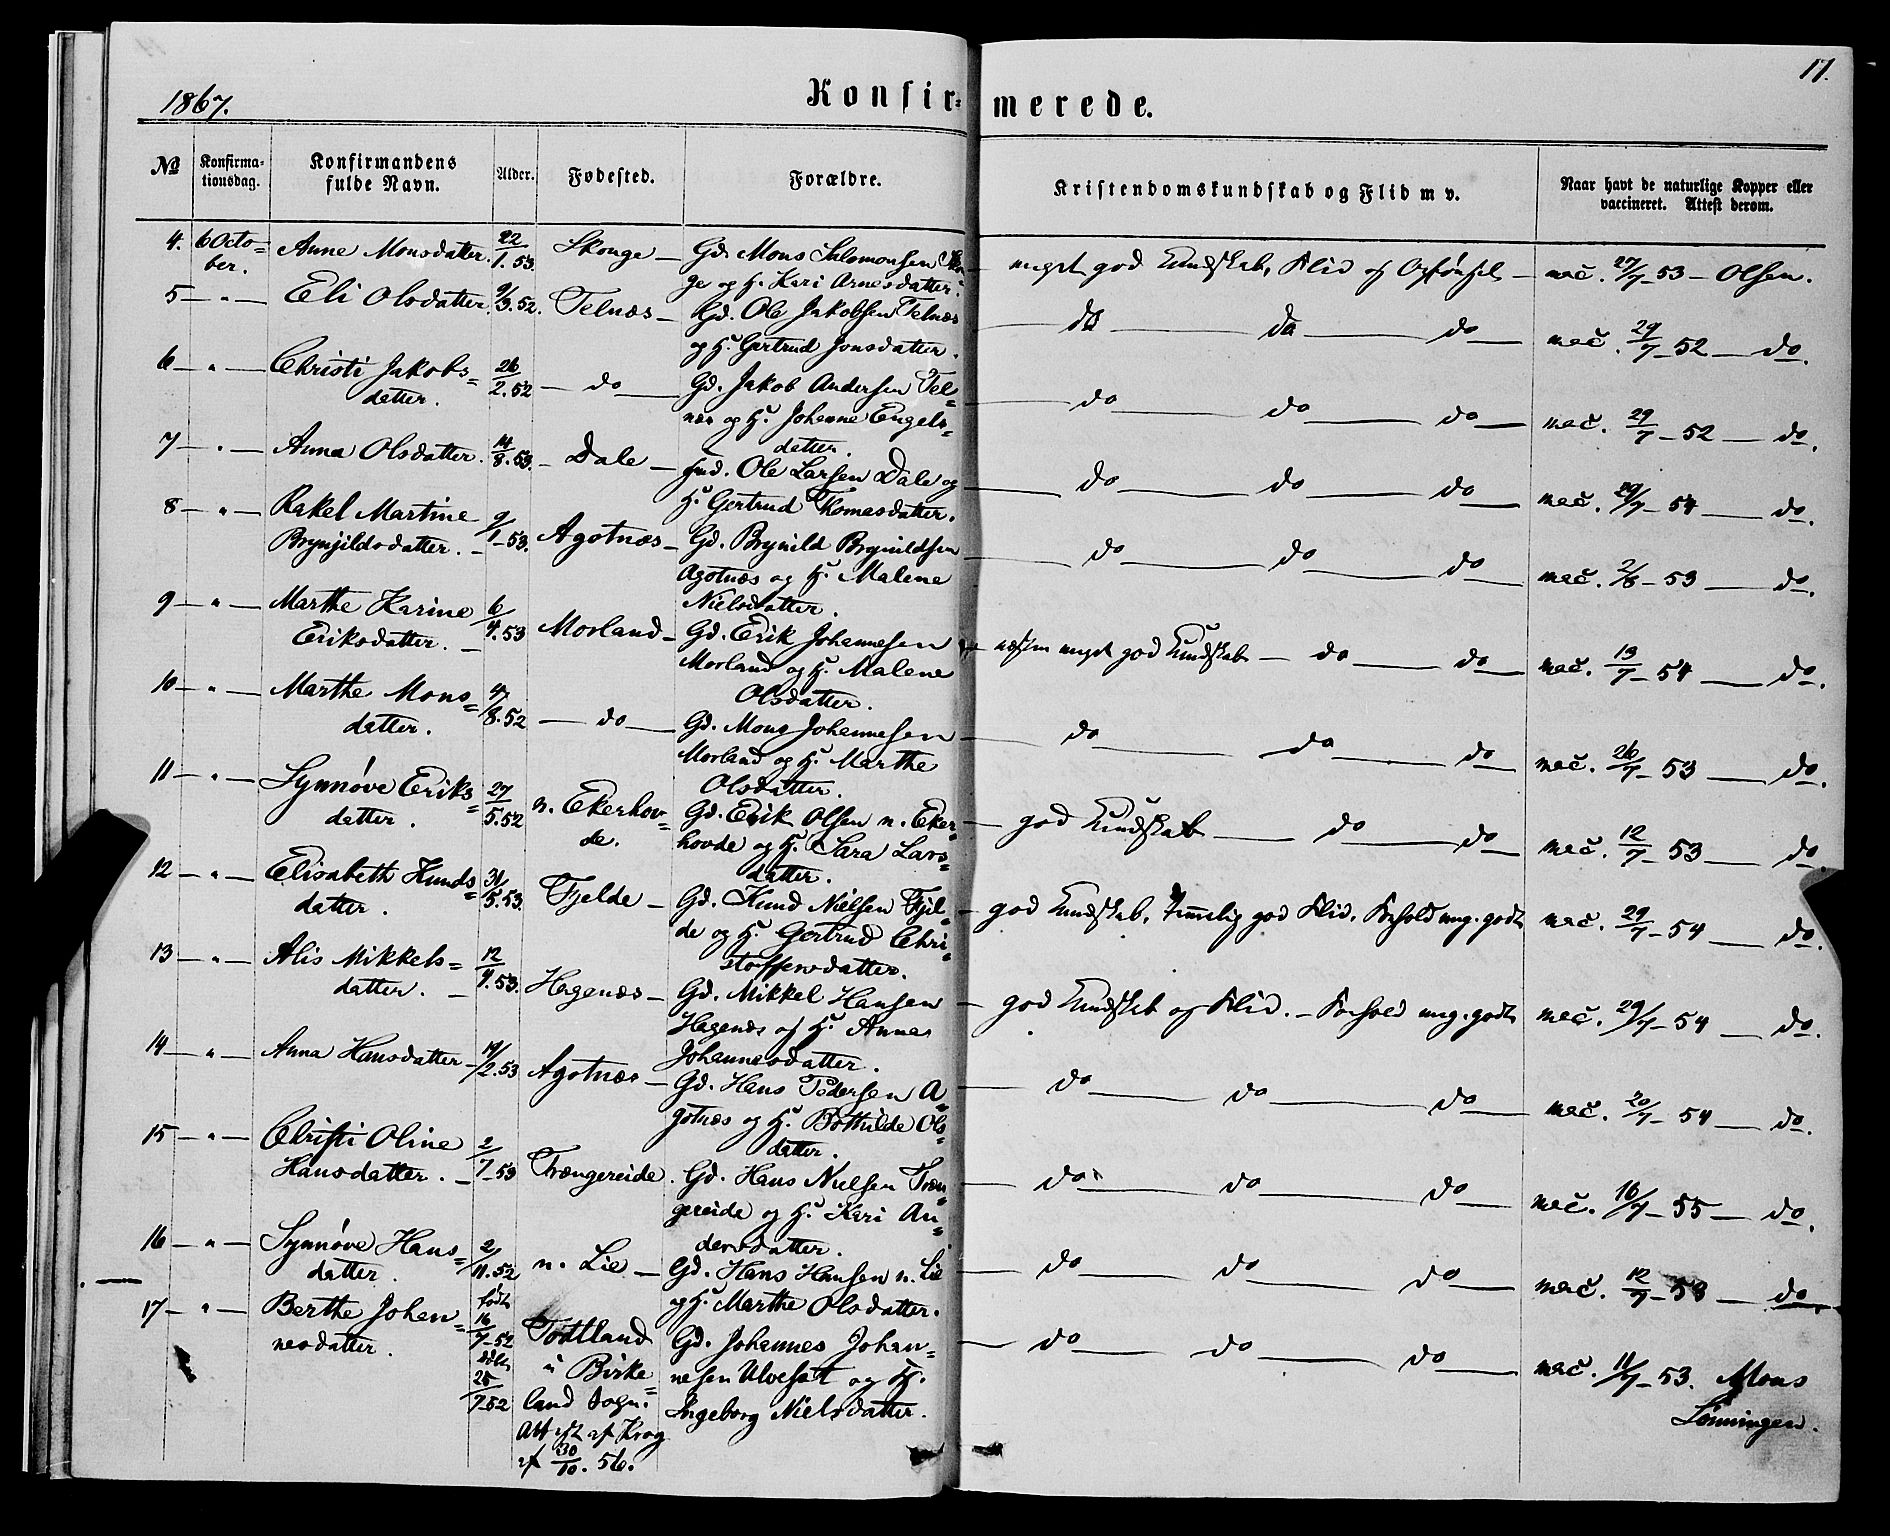 17.
1867.
Konfir=merede.
№
Konfirma-
tionsdag.
Konfirmandens
fulde Navn.
Alder.
Fødested.
Forældre.
Kristendomskundskab og Flid m v.
Naar havt de naturlige Kopper eller
vaccineret. Attest derom.
4. 6 Octo= Anne Monsdatter. 22/1. 53. Skoge — Gd. Mons Salomonsen — meget god Kundskab, Flid og Opførsel — vac. 27/7 53 — Olsen.
ber. ge og H. Kari Arnesdatter.
5 — " — Eli Olsdatter 9/3. 52. Telnæs — Gd. Ole Jakobsen Telnæs — do — do — do — vac. 29/7 — 52 — do.
og H. Gertrud Jonsdatter.
6 — " — Christi Jakobs= 26/2. 52 — do — Gd. Jakob Andersen Tel= — do — do — do — vac. 29/7 — 52 — do.
datter. næs og H. Johanne Engels=
datter.
7 — " — Anna Olsdatter. 14/8. 53. — Dale — Hmd. Ole Larsen Dale og — do — do — do — vac. 29/7 — 54 — do.
H. Gertrud Thomasdatter.
8 — " — Rakel Martine 9/1 — 53. Agotnæs — Gd. Brynild Brynildsen — do — do — do — vac. 2/8 — 53 — do.
Brynjildsdatter. — Agotnæs og H. Malene
Nielsdatter.
9 — " — Marthe Karine 6/4. 53 Morland — Gd. Erik Johannesen — næsten meget god Kundskab — do — do — vac. 13/7 — 54 — do.
Eriksdatter. — Morland og H. Malene
Olsdatter.
10 — " — Marthe Mons= 4/8. 52 — do — Gd. Mons Johannesen — do — do — do — vac. 26/7 — 53 — do.
datter. Morland og H. Marthe
Olsdatter.
11 — " — Synnøve Eriks= 27/5. 52 n. Ekerhov= Gd. Erik Olsen n. Eker= — god Kundskab — do — do — vac. 12/7 — 53 — do.
datter. de. hovde og H. Sara Lars=
datter.
12 — " — Elisabeth Knuds= 31/5. 53. Fjelde — Gd. Knud Nielsen Fjel= — god Kundskab, temmelig god Flid, Forhold meg. godt vac. 29/7 — 54 — do.
datter. de og H. Gertrud Chri=
stoffersdatter.
13 — " — Alis Mikkels= 12/4. 53. Hagenæs — Gd. Mikkel Hansen — god Kundskab og Flid. — Forhold meg. godt vac. 29/7 — 54 — do.
datter. — Hagenæs og H. Anna
Johannesdatter.
14 — " — Anna Hansdatter — 19/2. 53 Agotnæs — Gd. Hans Pedersen A= — do — do — do — vac. 20/7 — 54 — do.
gotnæs og H. Bothilde Ols=
datter.
15 — " — Christi Oline 2/7 — 53 Trængereide. Gd. Hans Nielsen Træn= — do — do — do — vac. 16/7 — 55 — do.
Hansdatter. — gereide og H. Kari An=
dersdatter.
16 — " — Synnøve Hans= 2/11. 52 n. Lie — Gd. Hans Hansen n. Lie — do — do — do — vac. 12/7 — 53 — do
datter. og H. Marthe Olsdatter.
17 — " — Berthe Johan= født 16/7 — 52 Tødtland Gd. Johannes Johan= — do — do — do — vac. 11/7 — 53. Mons
nesdatter. døbt 25/7 52 i Birke= nesen Ulvesæt og H. Lønningen.
land Sogn. Ingeborg Nielsdatter.
Attest af Krog
af 30/10. 56.